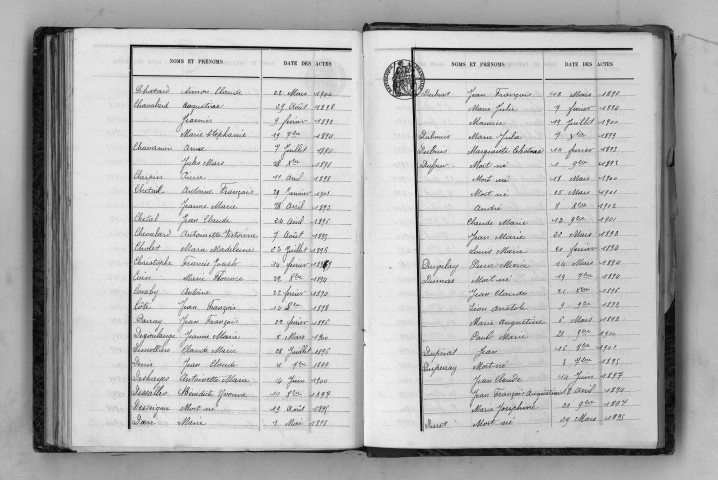 NOMS ET PRÉNOMS DATE DES ACTES
Chatard Simon Claude 22 Mars 1900
Chavalard 29 Août 1898
Jeannis 9 février 1893
Marie Stéphanie 19 9bre 1894
Chavanon 7 Juillet
Jules Marc 28 8bre 1891
Cherpin Pierre 11 Avril 1895
Chetail Antoine François 29 Janvier 1901
Jeanne Marie 28 Avril 1893
Chetal Jean Claude 24 Avril 1895
Chevalard Antoinette Victorine 7 Août 1895
Cholet Marie Madeleine 23 Juillet 1895
Christophe Francis Joseph 14 février
Marie Florence 22 8bre 1894
Antoine 22 février 1894
Côte Jean François 14 8bre 1898
Jean François 22 février 1895
Degoulange Jeanne Marie 8 Mars 1900
Claude Marie 28 Juillet 1895
Denis Jean Claude
Antoinette Marie 14 Juin 1900
Bénédite Yvonne 10 8bre 1897
Desseigne Mort né 19 Août 1895
Marie 1 Mai
NOMS ET PRÉNOMS DATE DES ACTES
Jean François 12 Mars 1898
Marie Julie 7 février 1894
Maurice 19 Juillet 1900
Dubouis Marie Julie 7 Xbre 1899
Marguerite 14 février 1893
Dufour Mort né 1 9bre 1893
Mort né 18 Mars 1900
Mort né 25 Mars 1901
André 8 8bre 1902
Claude Marie 13 9bre 1901
Jean Marie 22 Mars 1893
Louis Marie 20 février 1894
Dugelay Pierre Marie 14 Mars 1894
Dumas Mort né 19 7bre 1894
Jean Claude 21 8bre 1895
Leon Anatole 9 9bre 1898
Marie Augustine 5 Mars 1902
Paul Marie 28 9bre 1900
Duperat Jean 16 8bre 1901
Duperray Mort né 8 7bre 1895
Jean Claude 14 Juin 1897
Jean François Augustin 19 Avril 1894
Marie Joséphine 21 9bre 1897
Duret Mort né 29 Mars 1895